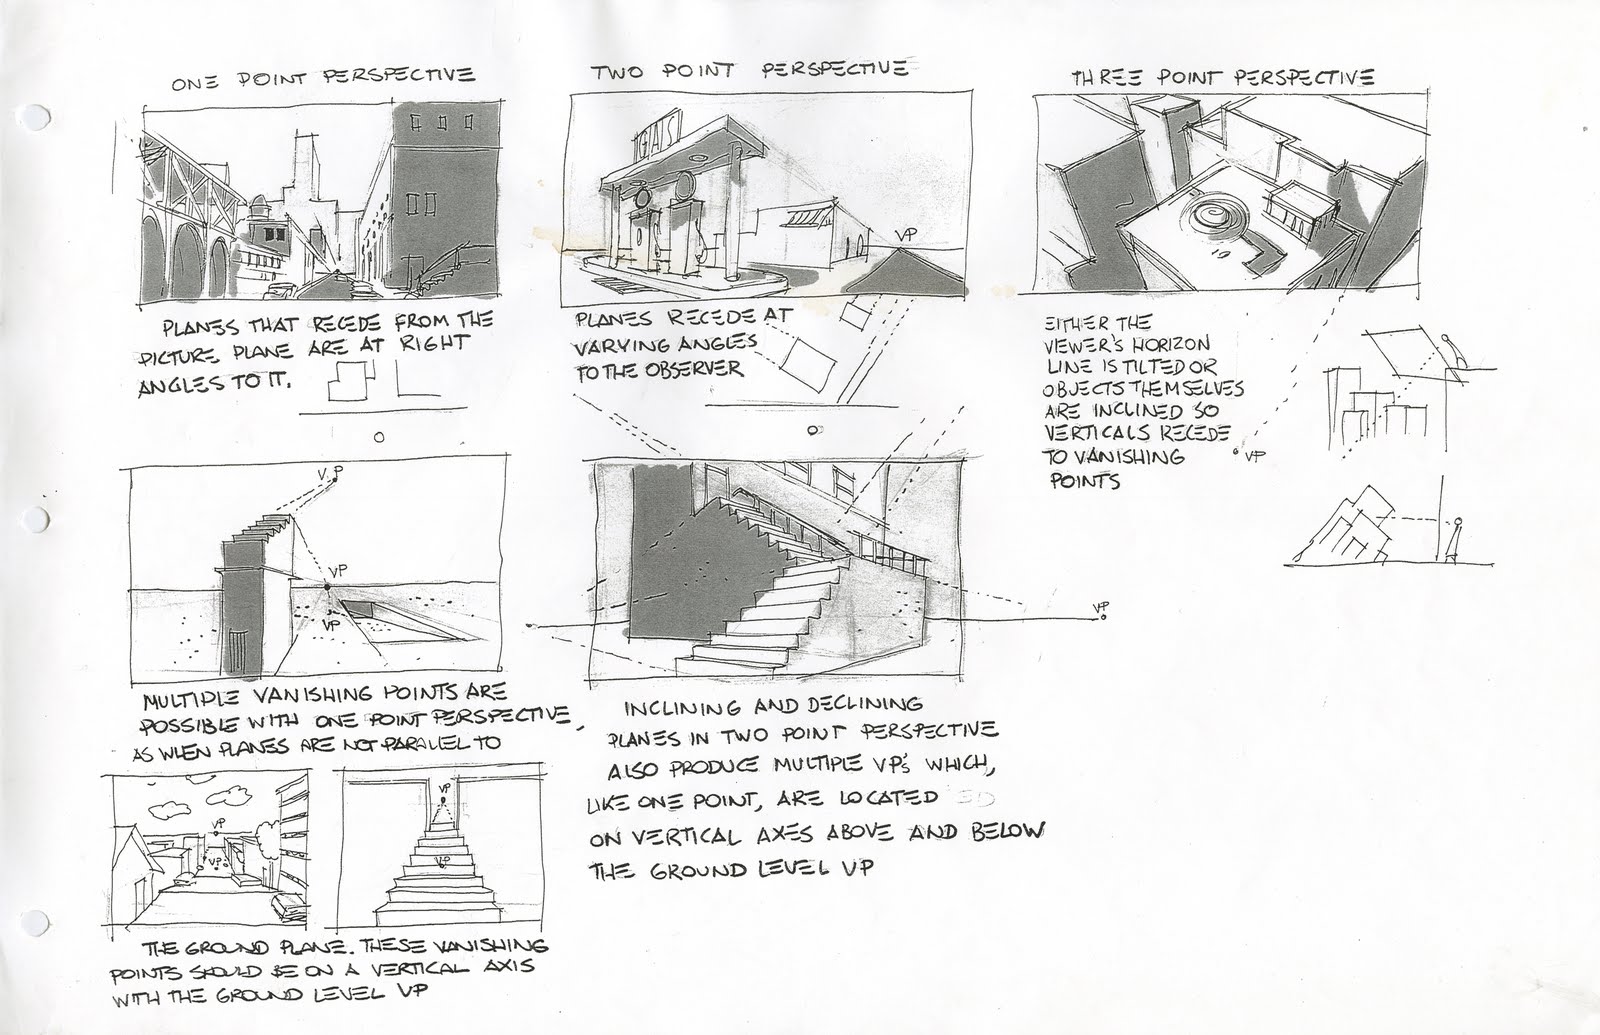 ONE POINT PERSPECTIVE
PLANES THAT RECEDE FROM THE
PICTURE PLANE ARE AT RIGHT
ANGLES TO IT.
V.P
VP
VP
MULTIPLE VANISHING POINTS ARE
POSSIBLE WITH ONE POINT PERSPECTIVE,
AS WHEN PLANES ARE NOT PARALLEL TO
VP
VP
VP
VP
THE GROUND PLANE. THESE VANISHING
POINTS SHOULD BE ON A VERTICAL AXIS
WITH THE GROUND LEVEL VP
TWO POINT PERSPECTIVE
GAS
VP
PLANES RECEDE AT
VARYING ANGLES
TO THE OBSERVER
VP
INCLINING AND DECLINING
PLANES IN TWO POINT PERSPECTIVE
ALSO PRODUCE MULTIPLE VP'S WHICH,
LIKE ONE POINT, ARE LOCATED ED
ON VERTICAL AXES ABOVE AND BELOW
THE GROUND LEVEL VP
THREE POINT PERSPECTIVE
EITHER THE
VIEWER'S HORIZON
LINE IS TILTED OR
OBJECTS THEMSELVES
ARE INCLINED SO
VERTICALS RECEDE
TO VANISHING
POINTS
VP